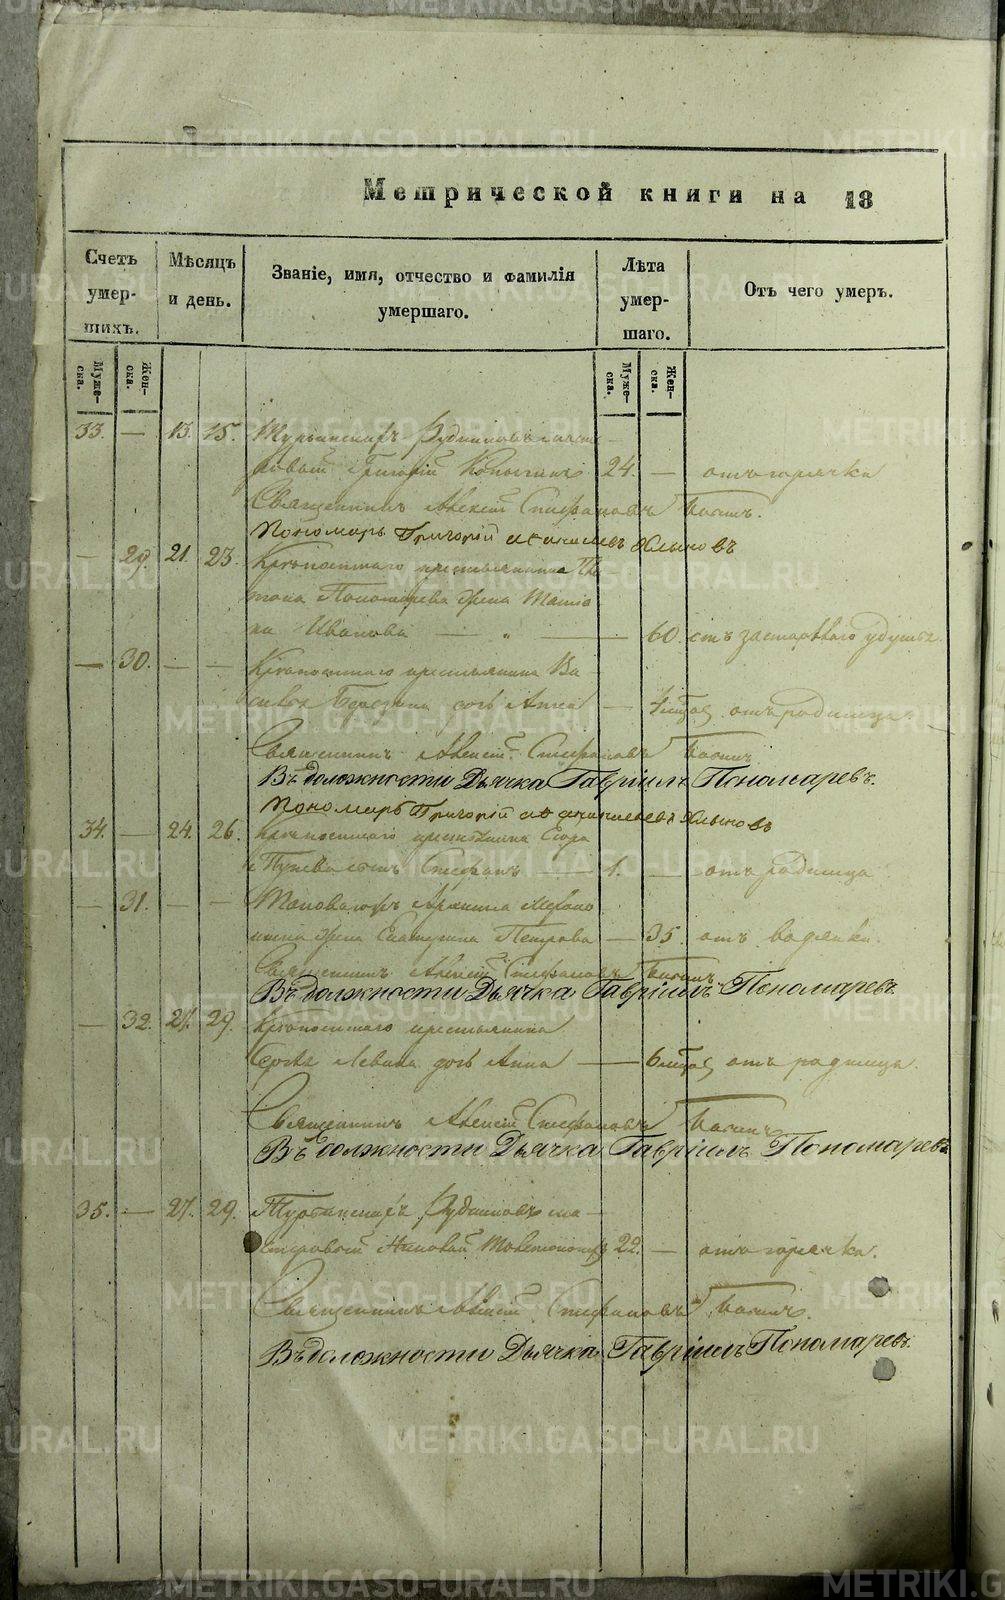 METRIKI.GASO-URAL.RU
Метрической книги на 18
Счетъ умер- шихъ.
Мѣсяцъ и день.
Званіе, имя, отчество и фамилія умершаго.
Лѣта умер- шаго.
Отъ чего умеръ.
Муже- ска.
Жен- ска.
Муже- ска.
Жен- ска.
33. — 13. 15. Турьинскихъ Рудниковъ масте-
ровой Григорій 24. — отъ горячки
Священникъ Алексій Стефановъ
Пономарь Григорій
— 29. 21. 23. Крѣпостнаго крестьянина Пла-
тона Пономарева жена Матро
на Иванова — „ — 60. отъ застарѣлаго удушья.
— 30. — — Крѣпостнаго крестьянина Ва-
силья дочь — отъ родимца.
Священникъ Алексій Стефановъ
Въ должности Дьячка Гавріилъ Пономаревъ.
Пономарь Григорій
34. — 24. 26. Крѣпостнаго крестьянина Егора
сынъ Стефанъ — 1. — отъ родимца
— 31. — —
жена Екатерина Петрова — 35. отъ водянки.
Священникъ Алексій Стефановъ
Въ должности Дьячка Гавріилъ Пономаревъ.
— 32. 27. 29. Крѣпостнаго крестьянина
Левина дочь Анна — отъ родимца.
Священникъ Алексій Стефановъ
Въ должности Дьячка Гавріилъ Пономаревъ
35. — 27. 29. Турьинскихъ Рудниковъ ма-
стеровый 22. — отъ горячки.
Священникъ Алексій Стефановъ
Въ должности Дьячка Гавріилъ Пономаревъ.